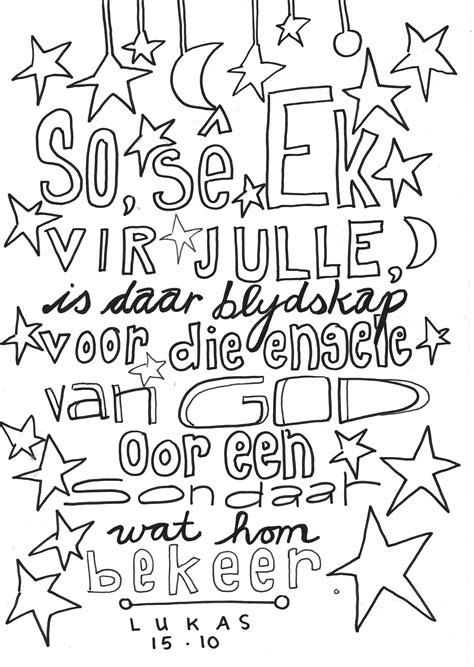 So, sê Ek
VIR JULLE,
is daar blydskap
voor die engele
van GOD
oor een
sondaar
wat hom
bekeer.
LUKAS
15.10